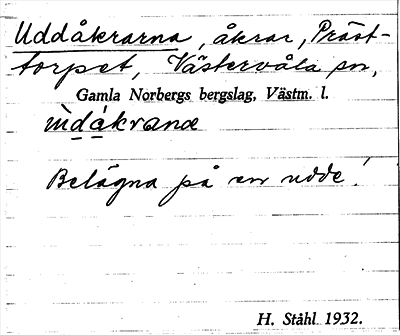 Uddåkrarna, åkrar, Präst-
torpet, Västervåla sn,
Gamla Norbergs bergslag, Västm. l.
ùdåkrana
Belägna på en udde!
H. Ståhl 1932.